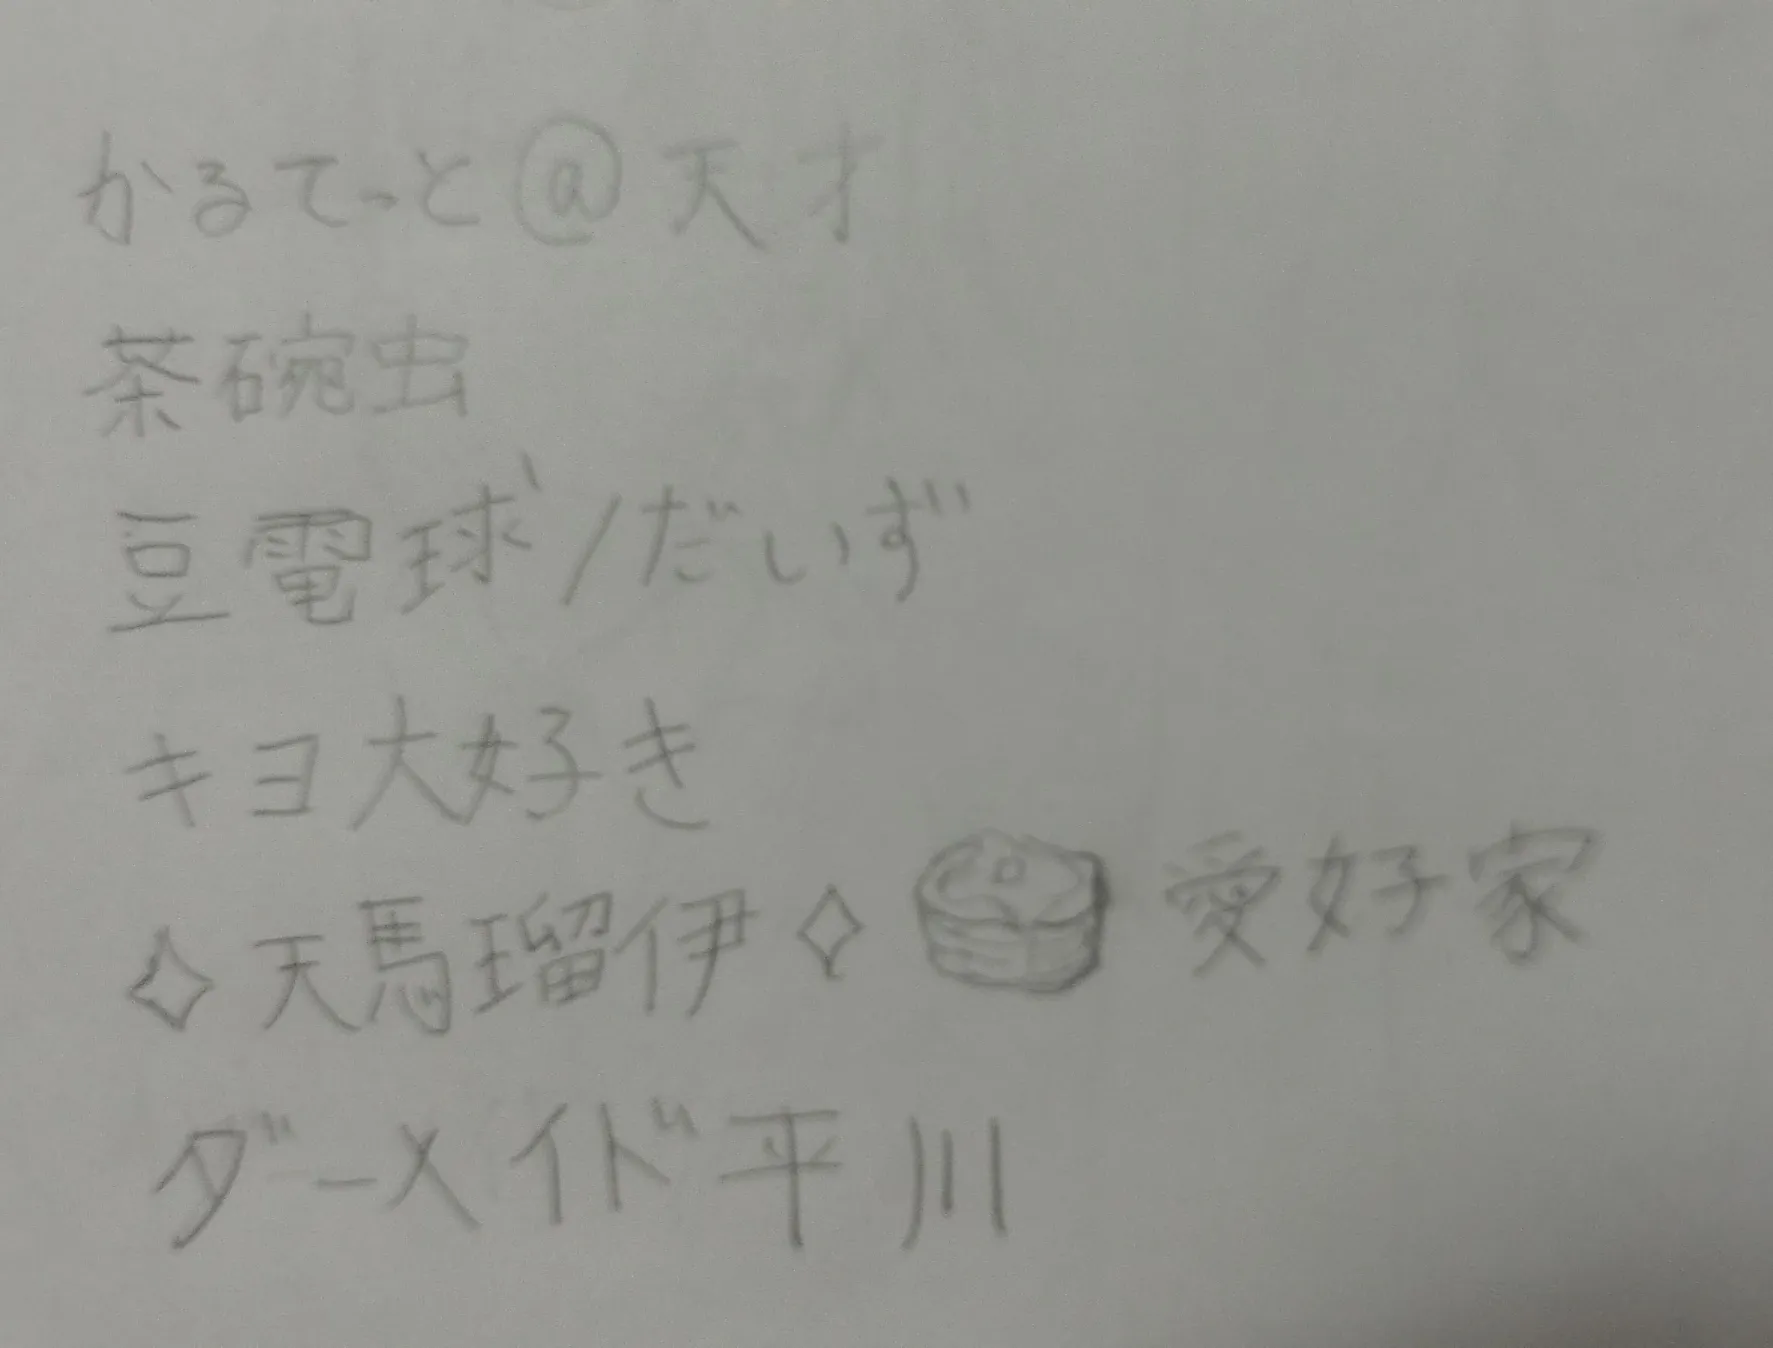 かるてっと@天才
茶碗虫
豆電球/だいず
キヨ大好き
✧天馬瑠伊✧🥞愛好家
ダーメイド平川